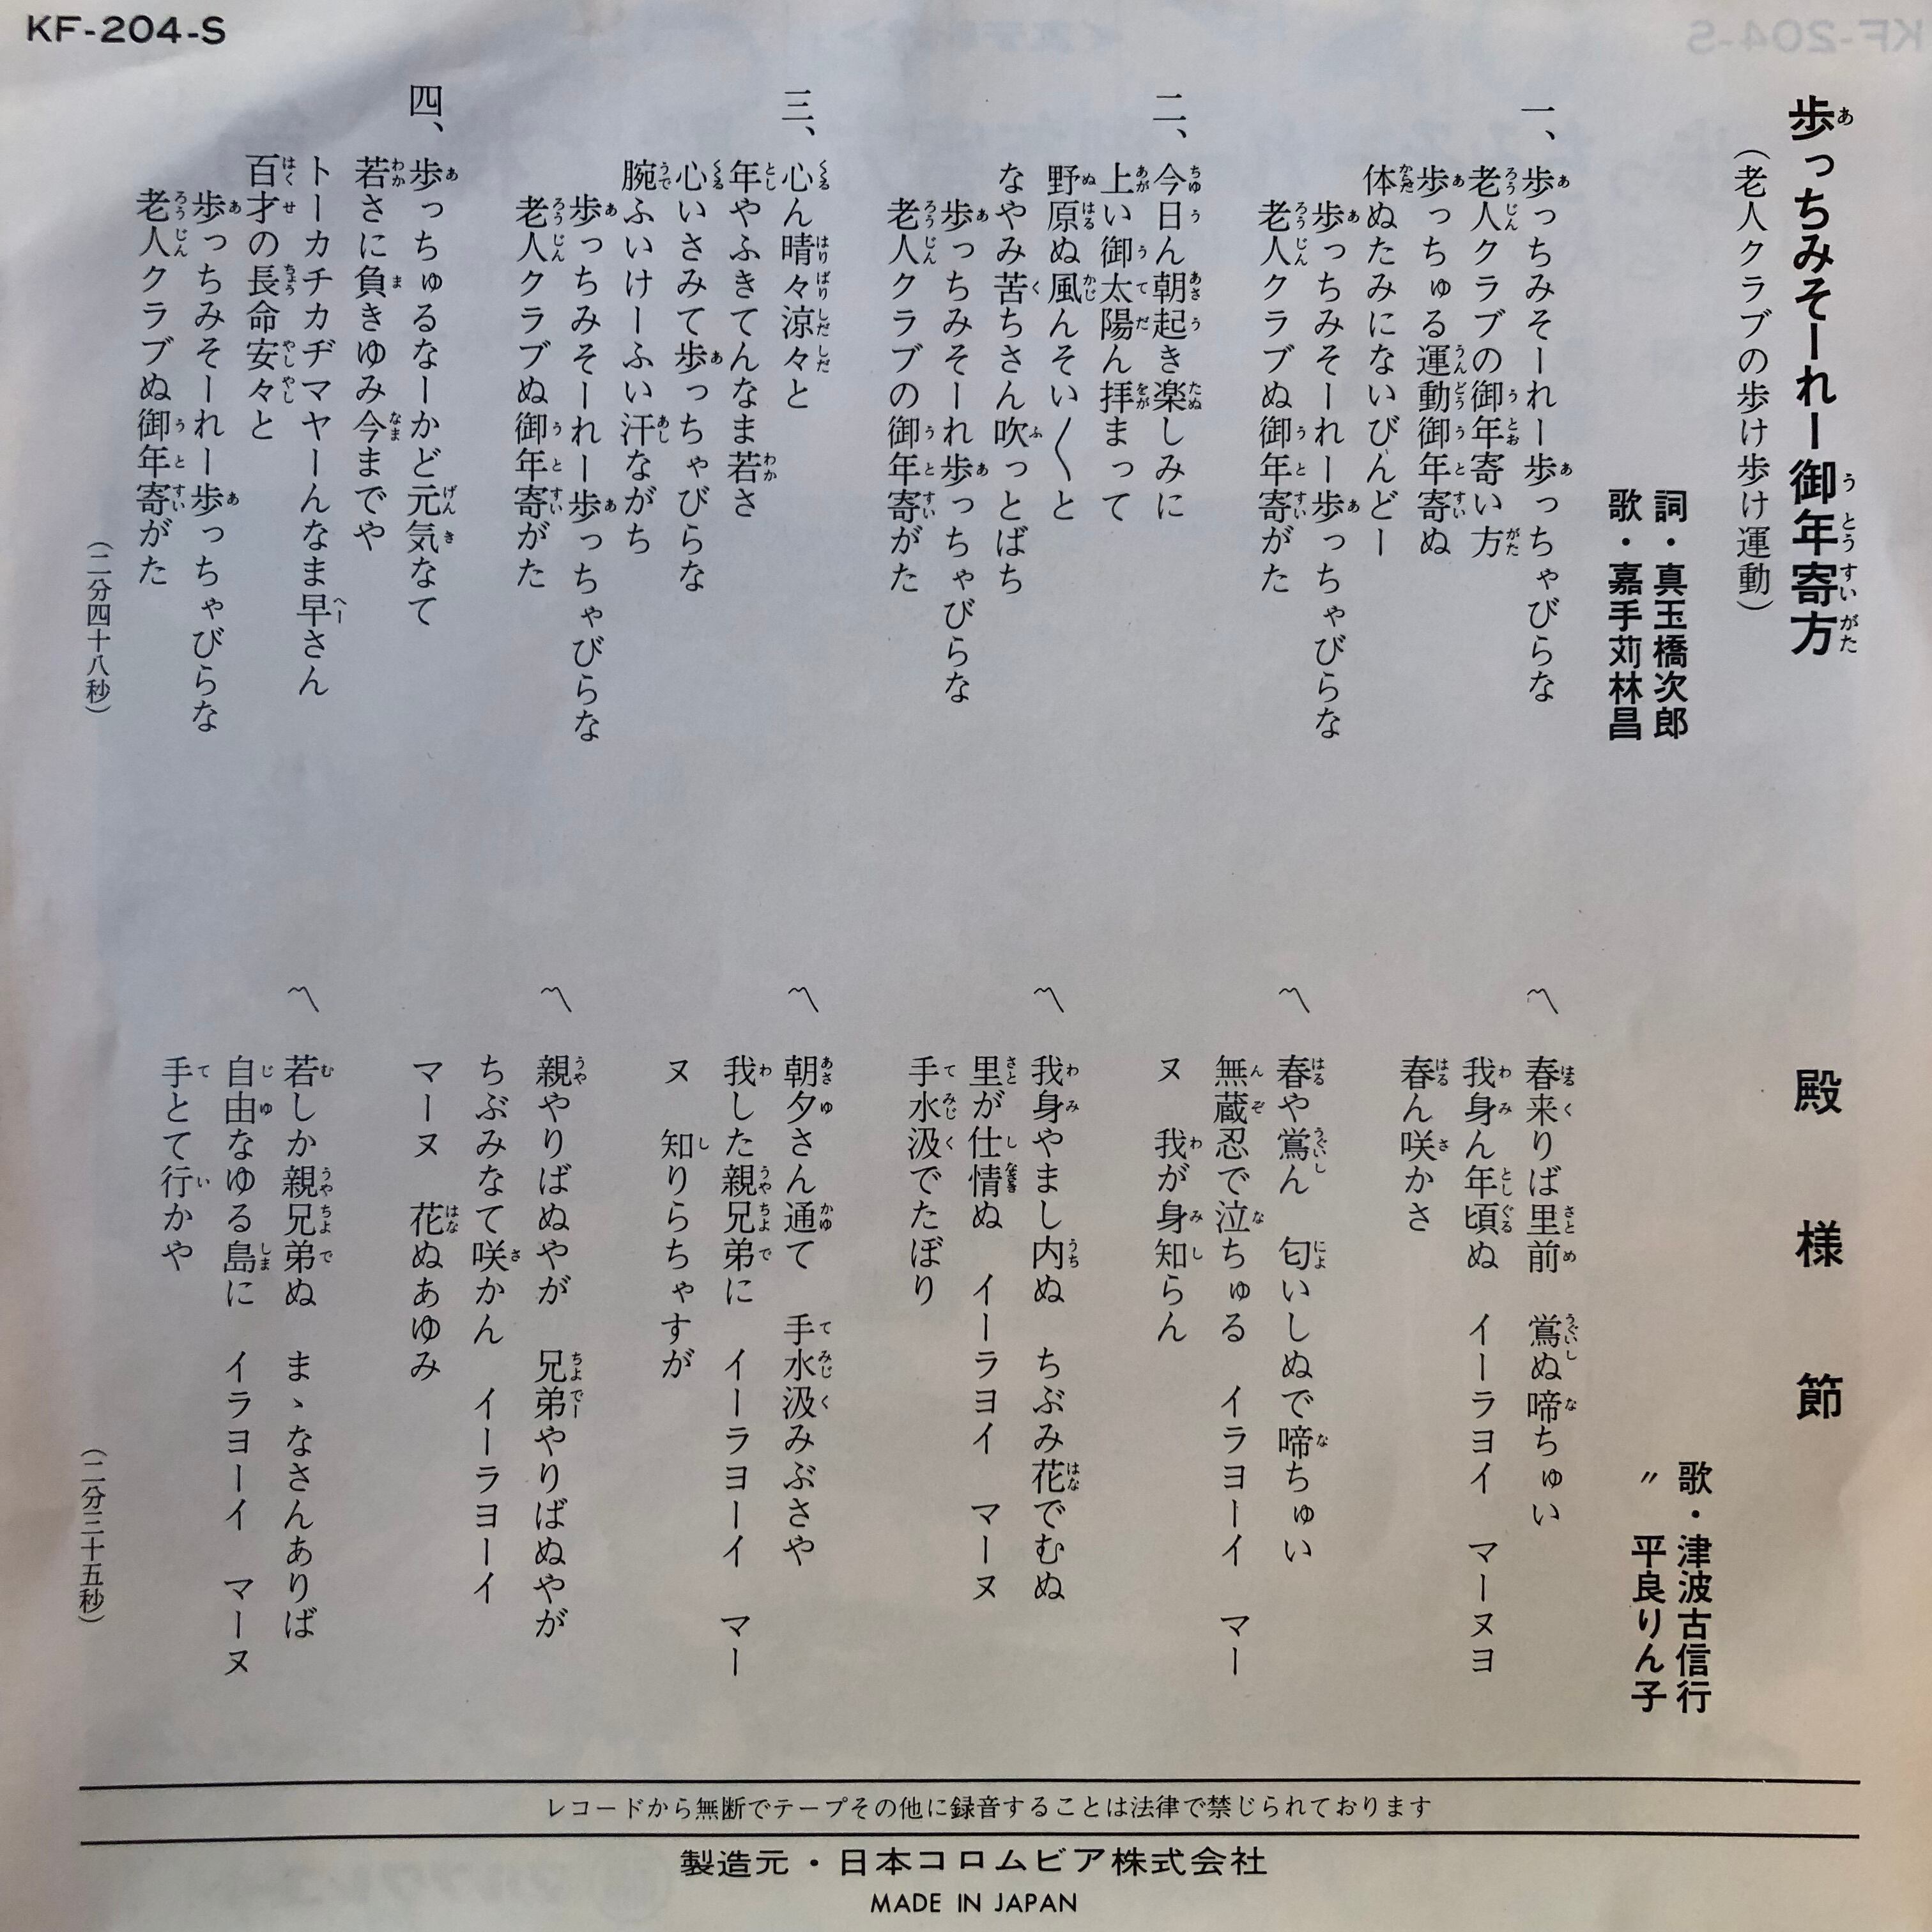 KF-204-S
歩っちみそーれー御年寄方
(老人クラブの歩け歩け運動)
詞・真玉橋次郎
歌・嘉手苅林昌
一、歩っちみそーれー歩っちゃびらな
老人クラブの御年寄い方
歩っちゅる運動御年寄ぬ
体ぬたみにないびんどー
歩っちみそーれー歩っちゃびらな
老人クラブぬ御年寄がた
二、今日ん朝起き楽しみに
上い御太陽ん拝まって
野原ぬ風んそい〱と
なやみ苦ちさん吹っとばち
歩っちみそーれ歩っちゃびらな
老人クラブの御年寄がた
三、心ん晴々涼々と
年やふきてんなま若さ
心いさみて歩っちゃびらな
腕ふいけーふい汗ながち
歩っちみそーれー歩っちゃびらな
老人クラブぬ御年寄がた
四、歩っちゅるなーかど元気なて
若さに負きゆみ今までや
トーカチカヂマヤーんなま早さん
百才の長命安々と
歩っちみそーれー歩っちゃびらな
老人クラブぬ御年寄がた
(二分四十八秒)
殿様節
歌・津波古信行
〃 平良りん子
〽 春来りば里前 鴬ぬ啼ちゅい
我身ん年頃ぬ イーラヨイ マーヌヨ
春ん咲かさ
〽 春や鴬ん 匂いしぬで啼ちゅい
無蔵忍で泣ちゅる イラヨーイ マー
ヌ 我が身知らん
〽 我身やまし内ぬ ちぶみ花でむぬ
里が仕情ぬ イーラヨイ マーヌ
手水汲でたぼり
〽 朝夕さん通て 手水汲みぶさや
我した親兄弟に イーラヨーイ マー
ヌ 知りらちゃすが
〽 親やりばぬやが 兄弟やりばぬやが
ちぶみなて咲かん イーラヨーイ
マーヌ 花ぬあゆみ
〽 若しか親兄弟ぬ まゝなさんありば
自由なゆる島に イラヨーイ マーヌ
手とて行かや
(二分三十五秒)
レコードから無断でテープその他に録音することは法律で禁じられております
製造元・日本コロムビア株式会社
MADE IN JAPAN